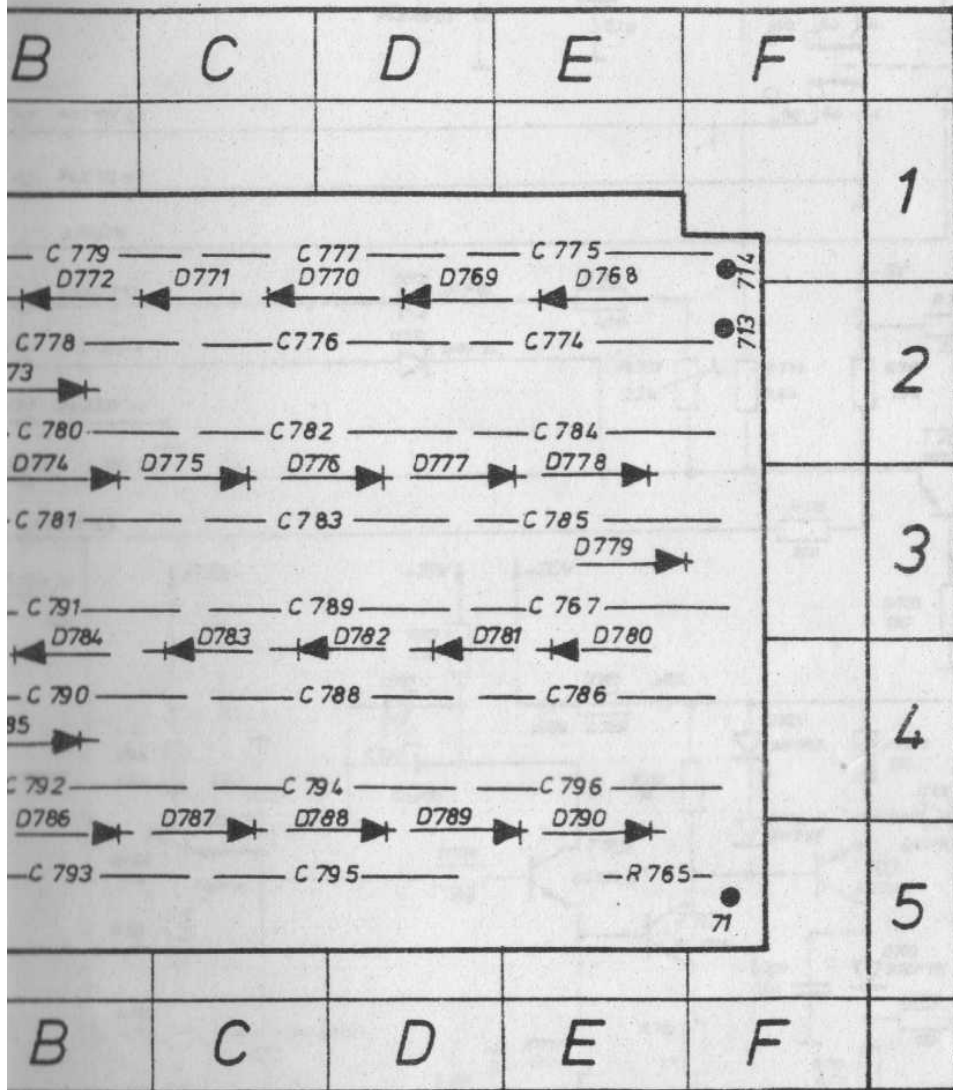 B C D E F
1
C 779 C 777 C 775 714
D772 D771 D770 D769 D768
713
C 778 C 776 C 774
73 2
C 780 C 782 C 784
D774 D775 D776 D777 D778
C 781 C 783 C 785
D779 3
C 791 C 789 C 767
D784 D783 D782 D781 D780
C 790 C 788 C 786
85 4
C 792 C 794 C 796
D786 D787 D788 D789 D790
C 793 C 795 R 765
71 5
B C D E F